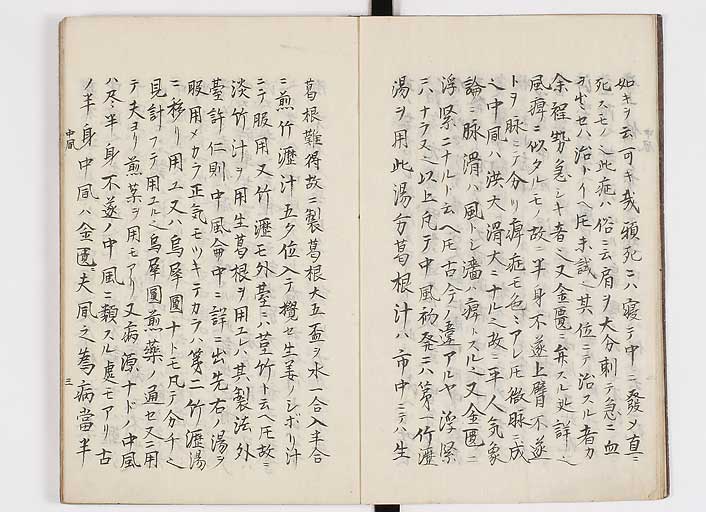 如キヲ云可キ哉頭死ニハ寝テ中ニ發メ直ニ
死スモノ之此症ハ俗ニ云肩ヲ大分刺テ急ニ血
ヲ出セハ治トイヘ𪜈未試之其位ニテ治スル者カ
余程勢急シキ者之又金匱ニ弁スル処詳之
風痺ニ似タルモノ故ニ半身不遂上臂不遂
トヲ脉ニテ分リ痺症モ色〻アレ𪜈微脉ニ成
之中風ハ洪大滑大ニナル之故ニ平人気象
論ニ脉滑ハ風トシ濇ハ痺トスル之又金匱ニ
浮緊ニナルト云ヘ𪜈古今ノ違アルヤ浮緊
ニハナラス之以上凡テ中風初発ニハ第一竹瀝
湯ヲ用此湯方葛根汁ハ市中ニテハ生
葛根難得故ニ製葛根大五盃ヲ水一合入半合
ニ煎竹瀝汁五夕位入テ攪セ生姜ノシボリ汁
ニテ服用又竹瀝モ外臺ニハ茎竹ト云ヘ𪜈故ニ
淡竹汁ヲ用生葛根ヲ用エレハ其製法外
臺許仁則中風侖中ニ詳ニ出先右ノ湯ヲ
服用メカラ正気モツキテカラハ第二竹瀝湯
ニ移リ用エ又ハ烏犀圓ナトモ凡テ分チ之
見計フテ用エル之烏犀圓煎藥ニ通セ又ニ用
テ夫ヨリ煎薬ヲ用モアリ又病源ナドノ中風
ハ尽半身不遂ノ中風ニ類スル處モアリ古
ノ半身中風ハ金匱ニ夫風之為病當半
中風
三